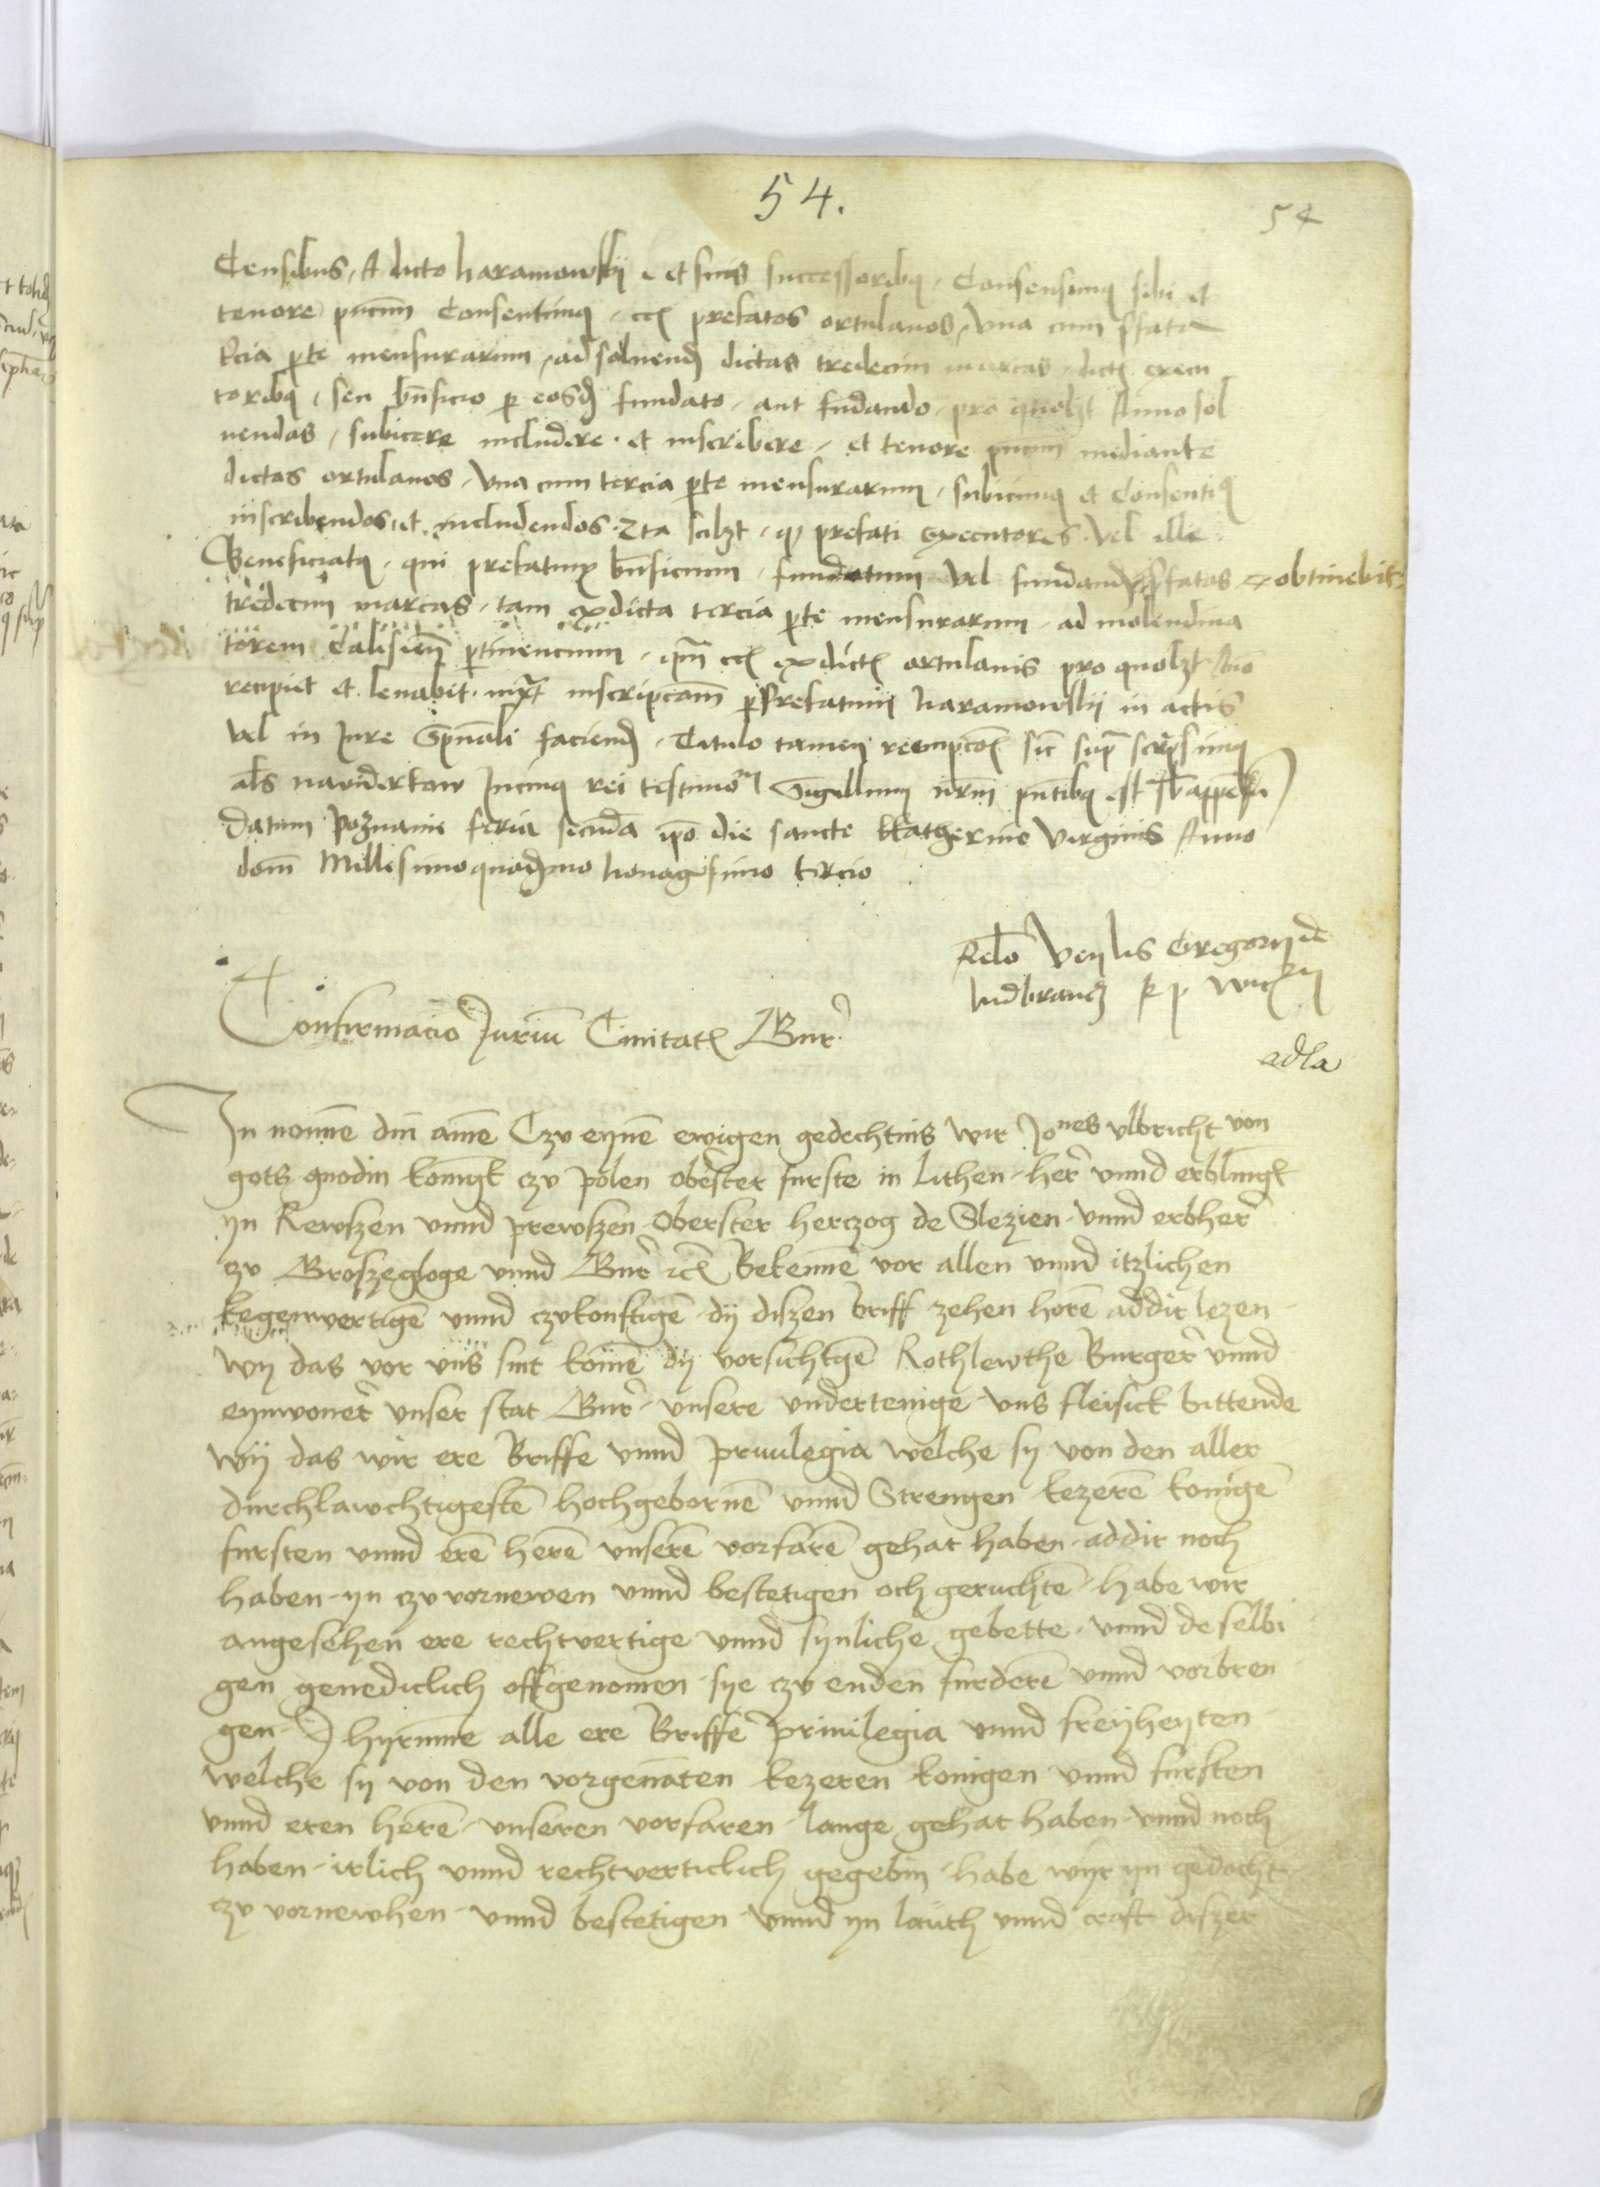 54.
54
Censibus, A dicto haramowskij et suis successoribus, Consensimus sibi et
tenore pncium Consentimus, prefatos ortulanos, vna cum pfata
tercia pte mensurarum, ad soluend dictas tredecim marcas, dictis execu
toribus, seu bnficio p eosd fundato, aut fundando, pro quolzt Anno sol
uendas, subicere includere et inscribere, et tenore pncium mediante
dictos ortulanos, vna cum tercia pte mensurarum, subicimus et Consentimus
inscribendos, et includendos. Ita scilzt, q prefati Executores vel ille
Beneficiatus, qui prefatum bnficium, fundatum vel fundand pfatas obtinebit
tredecim marcas, tam ex dicta tercia pte mensurarum, ad molendina
torem Calisien ptinencium, qm ex dictis ortulanis pro quolzt Ano
recipiet et leuabit iuxta inscripcom p prefatum haramowskij in actis
vel in Jure faciend, Titulo tamen reempcois sic supra scripsimus
als navyderkow Jn cuius rei testimom Sigillum nrm pntibus est subappensum
Datum Poznanie feria secunda ipo die sancte Katherine virginis Anno
dom Millesimo quadmo nonagesimo tercio
Relo Gregorij de
ludbrancz
Confirmacio Jurium Ciuitatis Gur
adla
Jn nomine dni amen Czv eynem ewigen gedechtnis wir Jones Albricht von
gots gnodin konigk czv polen obester furste in lithen her vnnd erbling
yn Rewszen vnnd prewszen oberster herczog de Slezien vnnd erbher
czv Groszegloge vnnd Gur Bekenne vor allen vnnd itzlichen
kegenwertigen vnnd czvkonftigen dy diszen briff zehen horen addir lezen
wy das vor vns sint komen dy vorsichtigen Rothlewthe Burger vnnd
eynwoner vnser stat Gur vnsere vndertenige vns fleisick bittende
wy das wir ere Briffe vnnd priuilegia welche sy von den aller
durchlawchtigesten hochgebornen vnnd Strengen kezeren konigen
fursten vnnd eren heren vnseren vorfaren gehat haben addir noch
haben yn czv vornewen vnnd bestetigen och geruchten habe wir
angesehen ere rechtvertige vnnd synliche gebette vnnd deselbi
gen genediclich offgenomen sye czv enden furderen vnnd vorbren
gen hyrumme alle ere Briffe priuilegia vnnd freyheyten
welche sy von den vorgenanten kezeren konigen vnnd fursten
vnnd eren heren vnseren vorfaren lange gehat haben vnnd noch
haben irlich vnnd rechtverticlich gegebin habe wyr yn gedocht
czv vornewhen vnnd bestetigen vnnd yn lauth vnnd craft diszer